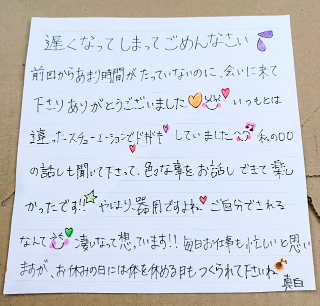 遅くなってしまってごめんなさい
前回からあまり時間がたっていないのに、会いに来て
下さりありがとうございました いつもとは
違ったシチュエーションでドキドキしていました 私の〇〇
の話しも聞いて下さって、色々な事をお話しできて楽し
かったです!! やはり、器用ですよね ご自分でされる
なんて 凄いなって想っています!! 毎日お仕事も忙しいと思い
ますが、お休みの日には体を休める日もつくられて下さいね
真白